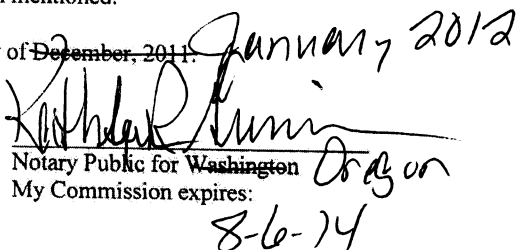 mentioned.
of December, 2011. January 2012
Notary Public for Washington Oregon
My Commission expires:
8-6-14